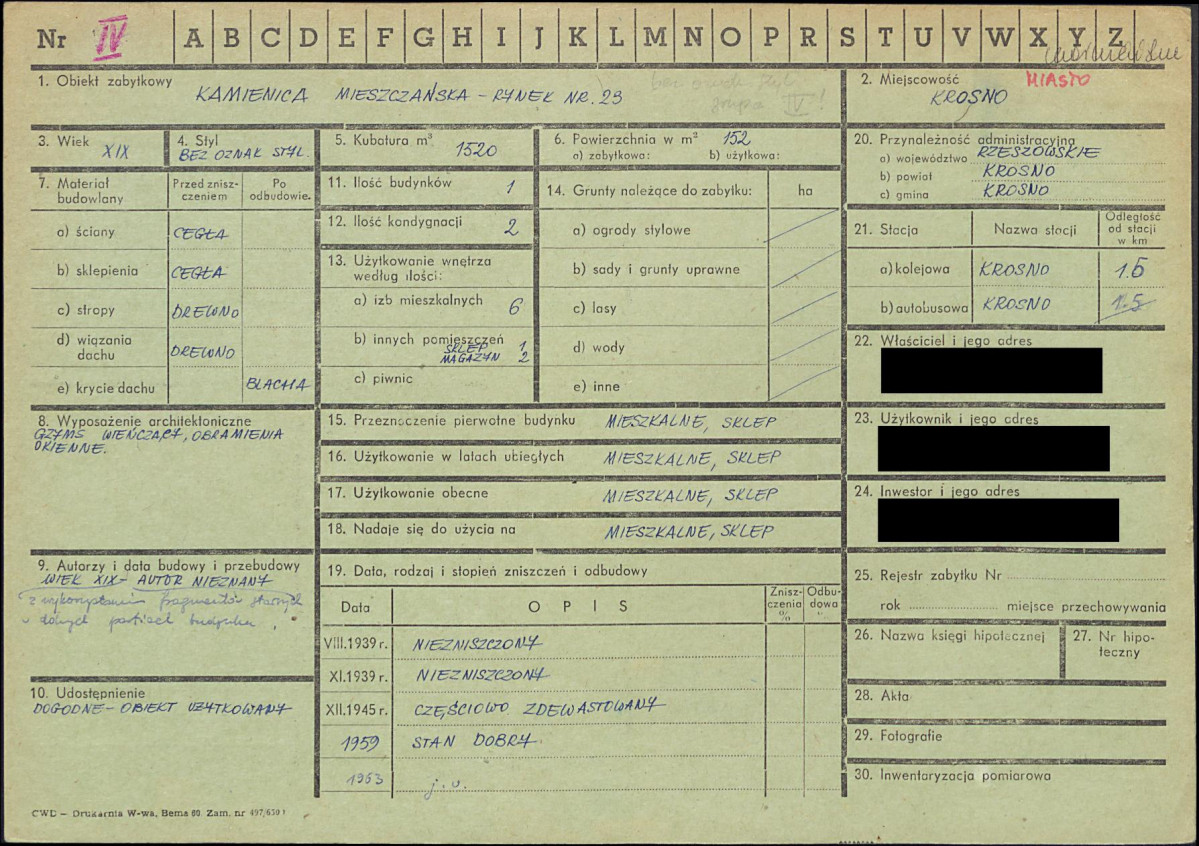 Nr IV A B C D E F G H I J K L M N O P R S T U V W X Y Z
1. Obiekt zabytkowy
KAMIENICA MIESZCZAŃSKA - RYNEK NR. 23
2. Miejscowość MIASTO
KROSNO
3. Wiek XIX
4. Styl
BEZ OZNAK STYL.
5. Kubatura m³ 1520
6. Powierzchnia w m² 152
a) zabytkowa: b) użytkowa:
7. Materiał budowlany
Przed zniszczeniem
Po odbudowie.
a) ściany CEGŁA
b) sklepienia CEGŁA
c) stropy DREWNO
d) wiązania dachu DREWNO
e) krycie dachu BLACHA
8. Wyposażenie architektoniczne
GZYMS WIEŃCZĄCY, OBRAMIENIA
OKIENNE.
9. Autorzy i data budowy i przebudowy
WIEK XIX - AUTOR NIEZNANY
z wykorzystaniem fragmentów starych
w dolnych partiach budynku.
10. Udostępnienie
DOGODNE - OBIEKT UŻYTKOWANY
11. Ilość budynków 1
12. Ilość kondygnacji 2
13. Użytkowanie wnętrza
według ilości:
a) izb mieszkalnych 6
b) innych pomieszczeń
SKLEP 1
MAGAZYN 2
c) piwnic
14. Grunty należące do zabytku: ha
a) ogrody stylowe
b) sady i grunty uprawne
c) lasy
d) wody
e) inne
15. Przeznaczenie pierwotne budynku MIESZKALNE, SKLEP
16. Użytkowanie w latach ubiegłych MIESZKALNE, SKLEP
17. Użytkowanie obecne MIESZKALNE, SKLEP
18. Nadaje się do użycia na MIESZKALNE, SKLEP
19. Data, rodzaj i stopień zniszczeń i odbudowy
Data OPIS Zniszczenia % Odbudowa
VIII.1939 r. NIEZNISZCZONY
XI.1939 r. NIEZNISZCZONY
XII.1945 r. CZĘŚCIOWO ZDEWASTOWANY
1959 STAN DOBRY.
1963 j.w.
20. Przynależność administracyjna
a) województwo RZESZOWSKIE
b) powiat KROSNO
c) gmina KROSNO
21. Stacja Nazwa stacji Odległość od stacji w km
a) kolejowa KROSNO 1.5
b) autobusowa KROSNO 1.5
22. Właściciel i jego adres
23. Użytkownik i jego adres
24. Inwestor i jego adres
25. Rejestr zabytku Nr
rok miejsce przechowywania
26. Nazwa księgi hipotecznej
27. Nr hipoteczny
28. Akta
29. Fotografie
30. Inwentaryzacja pomiarowa
CWD - Drukarnia W-wa, Bema 60. Zam. nr 497/650